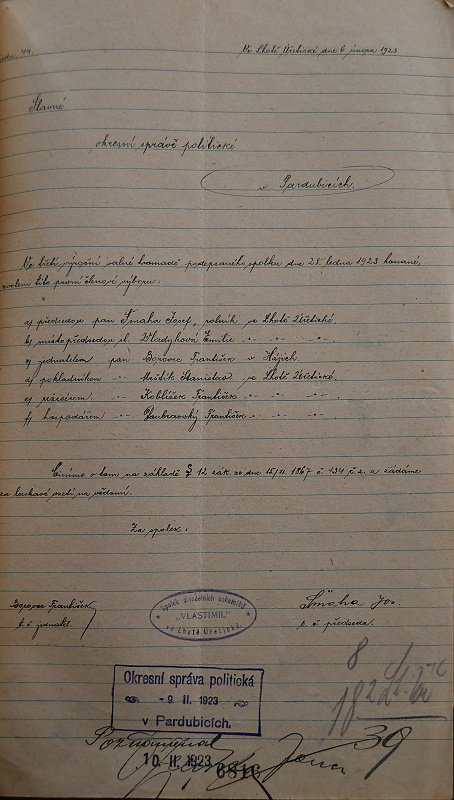 44.
Ve Lhotě Úřetické dne 6. února 1923.
Slavné
okresní správě politické
v Pardubicích.
Ve třetí výroční valné hromadě podepsaného spolku dne 28. ledna 1923 konané,
zvoleni tito první členové výboru:
a) předsedou pan Šmaha Josef, rolník ve Lhotě Úřetické.
b) místopředsedou sl. Vladyková Emilie " " "
c) jednatelem pan Borovec František v Hájích.
d) pokladníkem " Mištík Stanislav ve Lhotě Úřetické.
e) režisérem " Koblížek František " " "
f) hospodářem " Doubravský František " " "
Činíme o tom na základě § 12 zák. ze dne 15/XI. 1867 č. 134 ř. z. a žádáme
za laskavé vzetí na vědomí.
Za spolek:
Borovec František
t. č. jednatel.
Spolek divadelních ochotníků
"VLASTIMIL"
ve Lhotě Úřetické.
Šmaha Jos.
t. č. předseda.
Okresní správa politická
- 9. II. 1923
v Pardubicích.
8
18
Poznamenal
39
10. II. 1923
6816